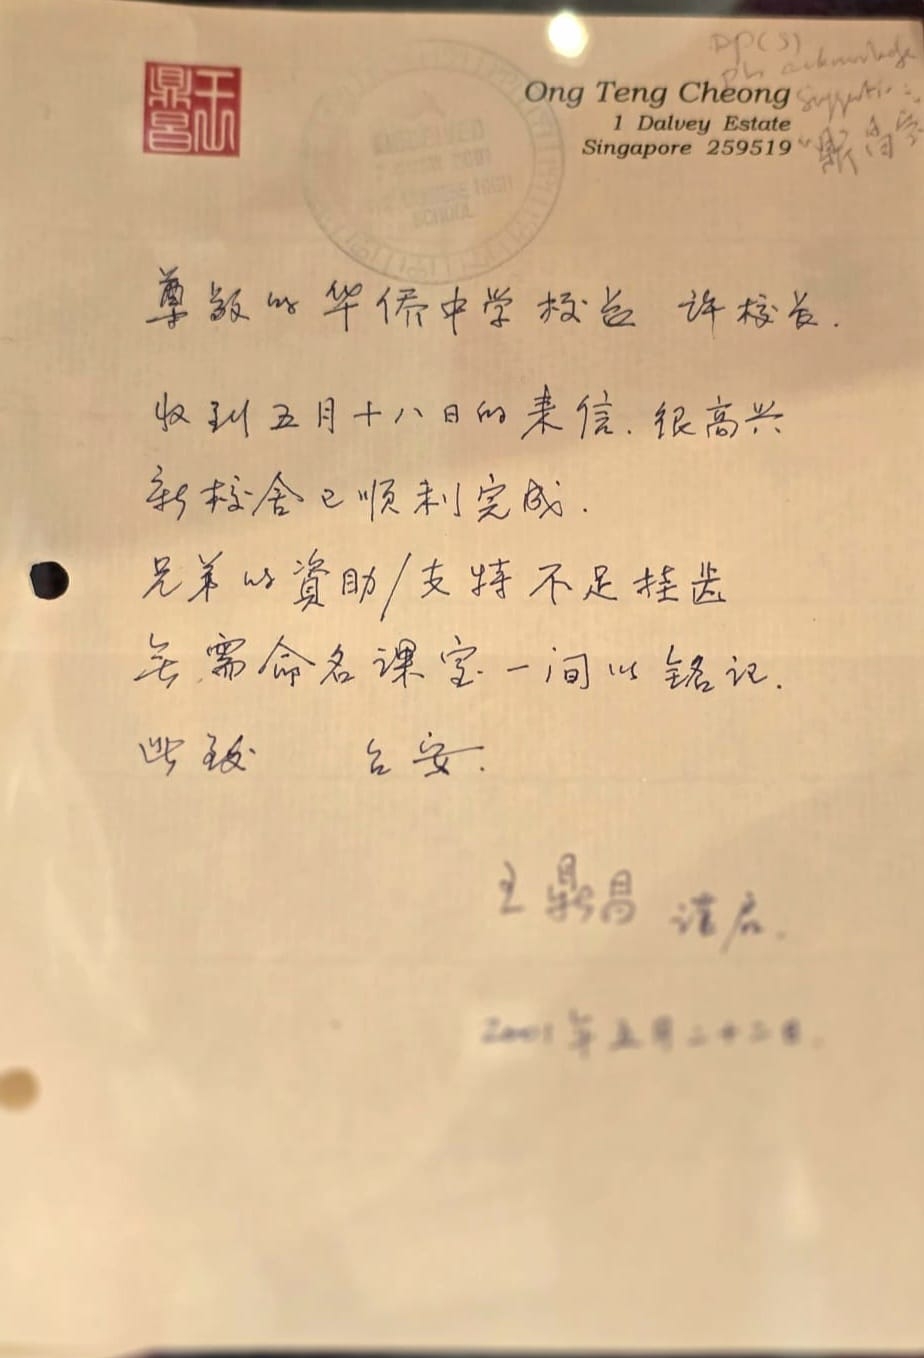 王鼎昌
DP(S)
Pls acknowledge
Ong Teng Cheong
1 Dalvey Estate
Singapore 259519
SCHOOL
尊敬的华侨中学校长 许校长.
收到五月十八日的来信. 很高兴
新校舍已顺利完成.
兄弟的資助/支持不足挂齿
无需命名课室一间以铭记.
此致 台安.
王鼎昌 谨启.
2001年五月二十二日.